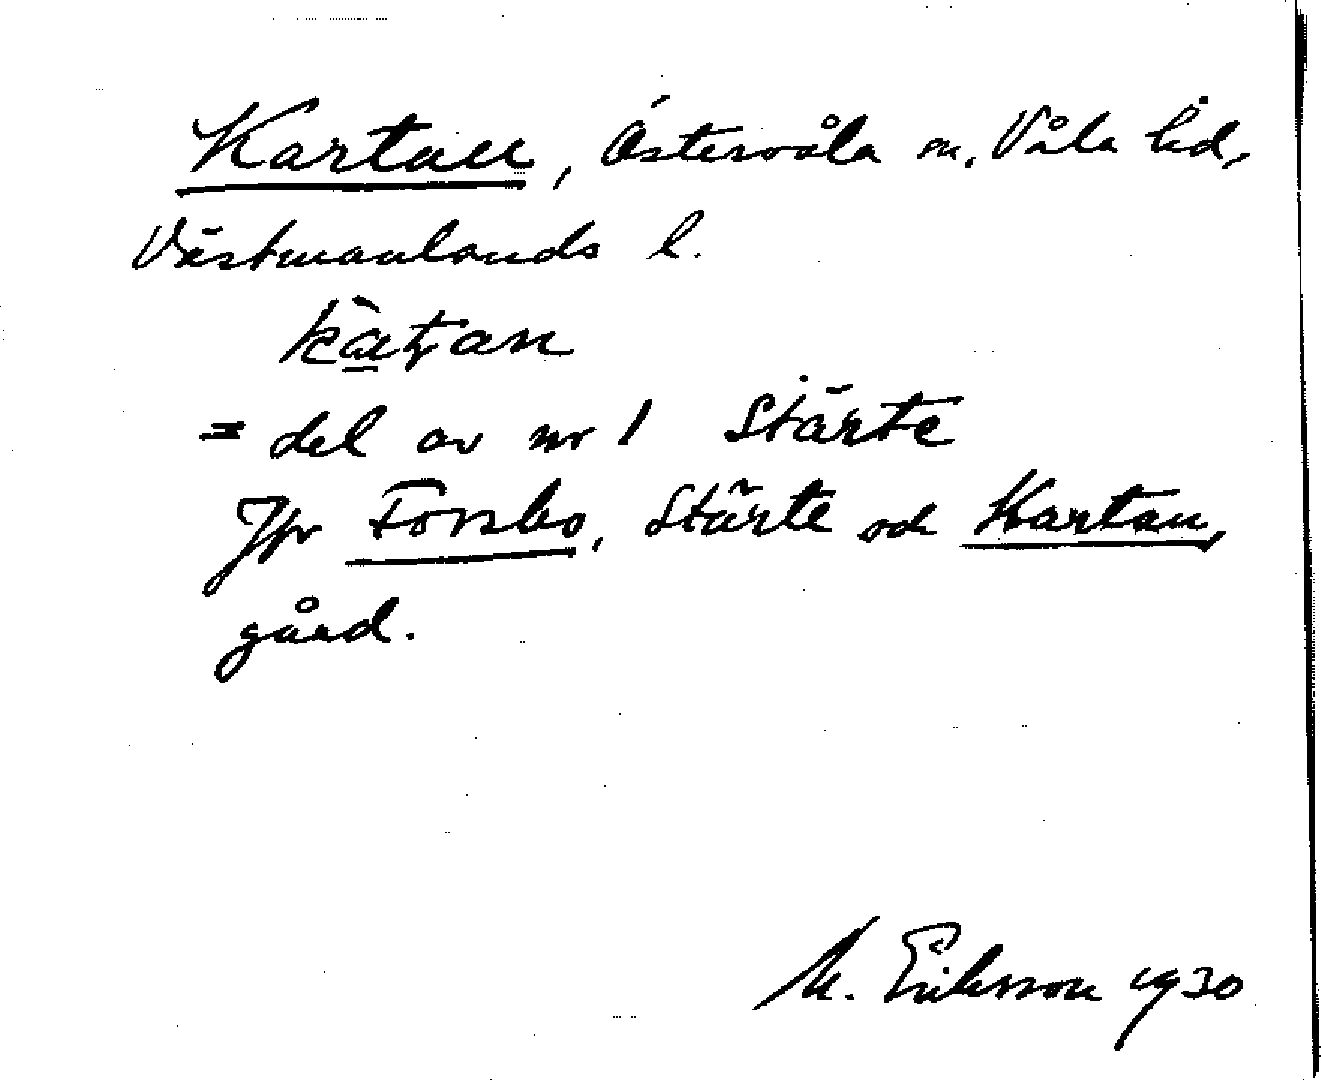 Kartan, Östervåla sn, Våla hd,
Västmanlands l.
= del av nr 1 Stärte
Jfr Forsbo, Stärte och Kartan,
gård.
M. Eriksson 1930